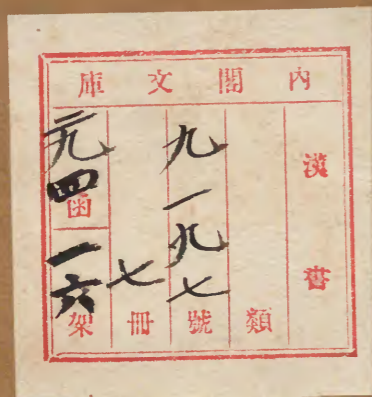 內閣文庫
漢書
類
九一九七號
七冊
二九四函
一六架